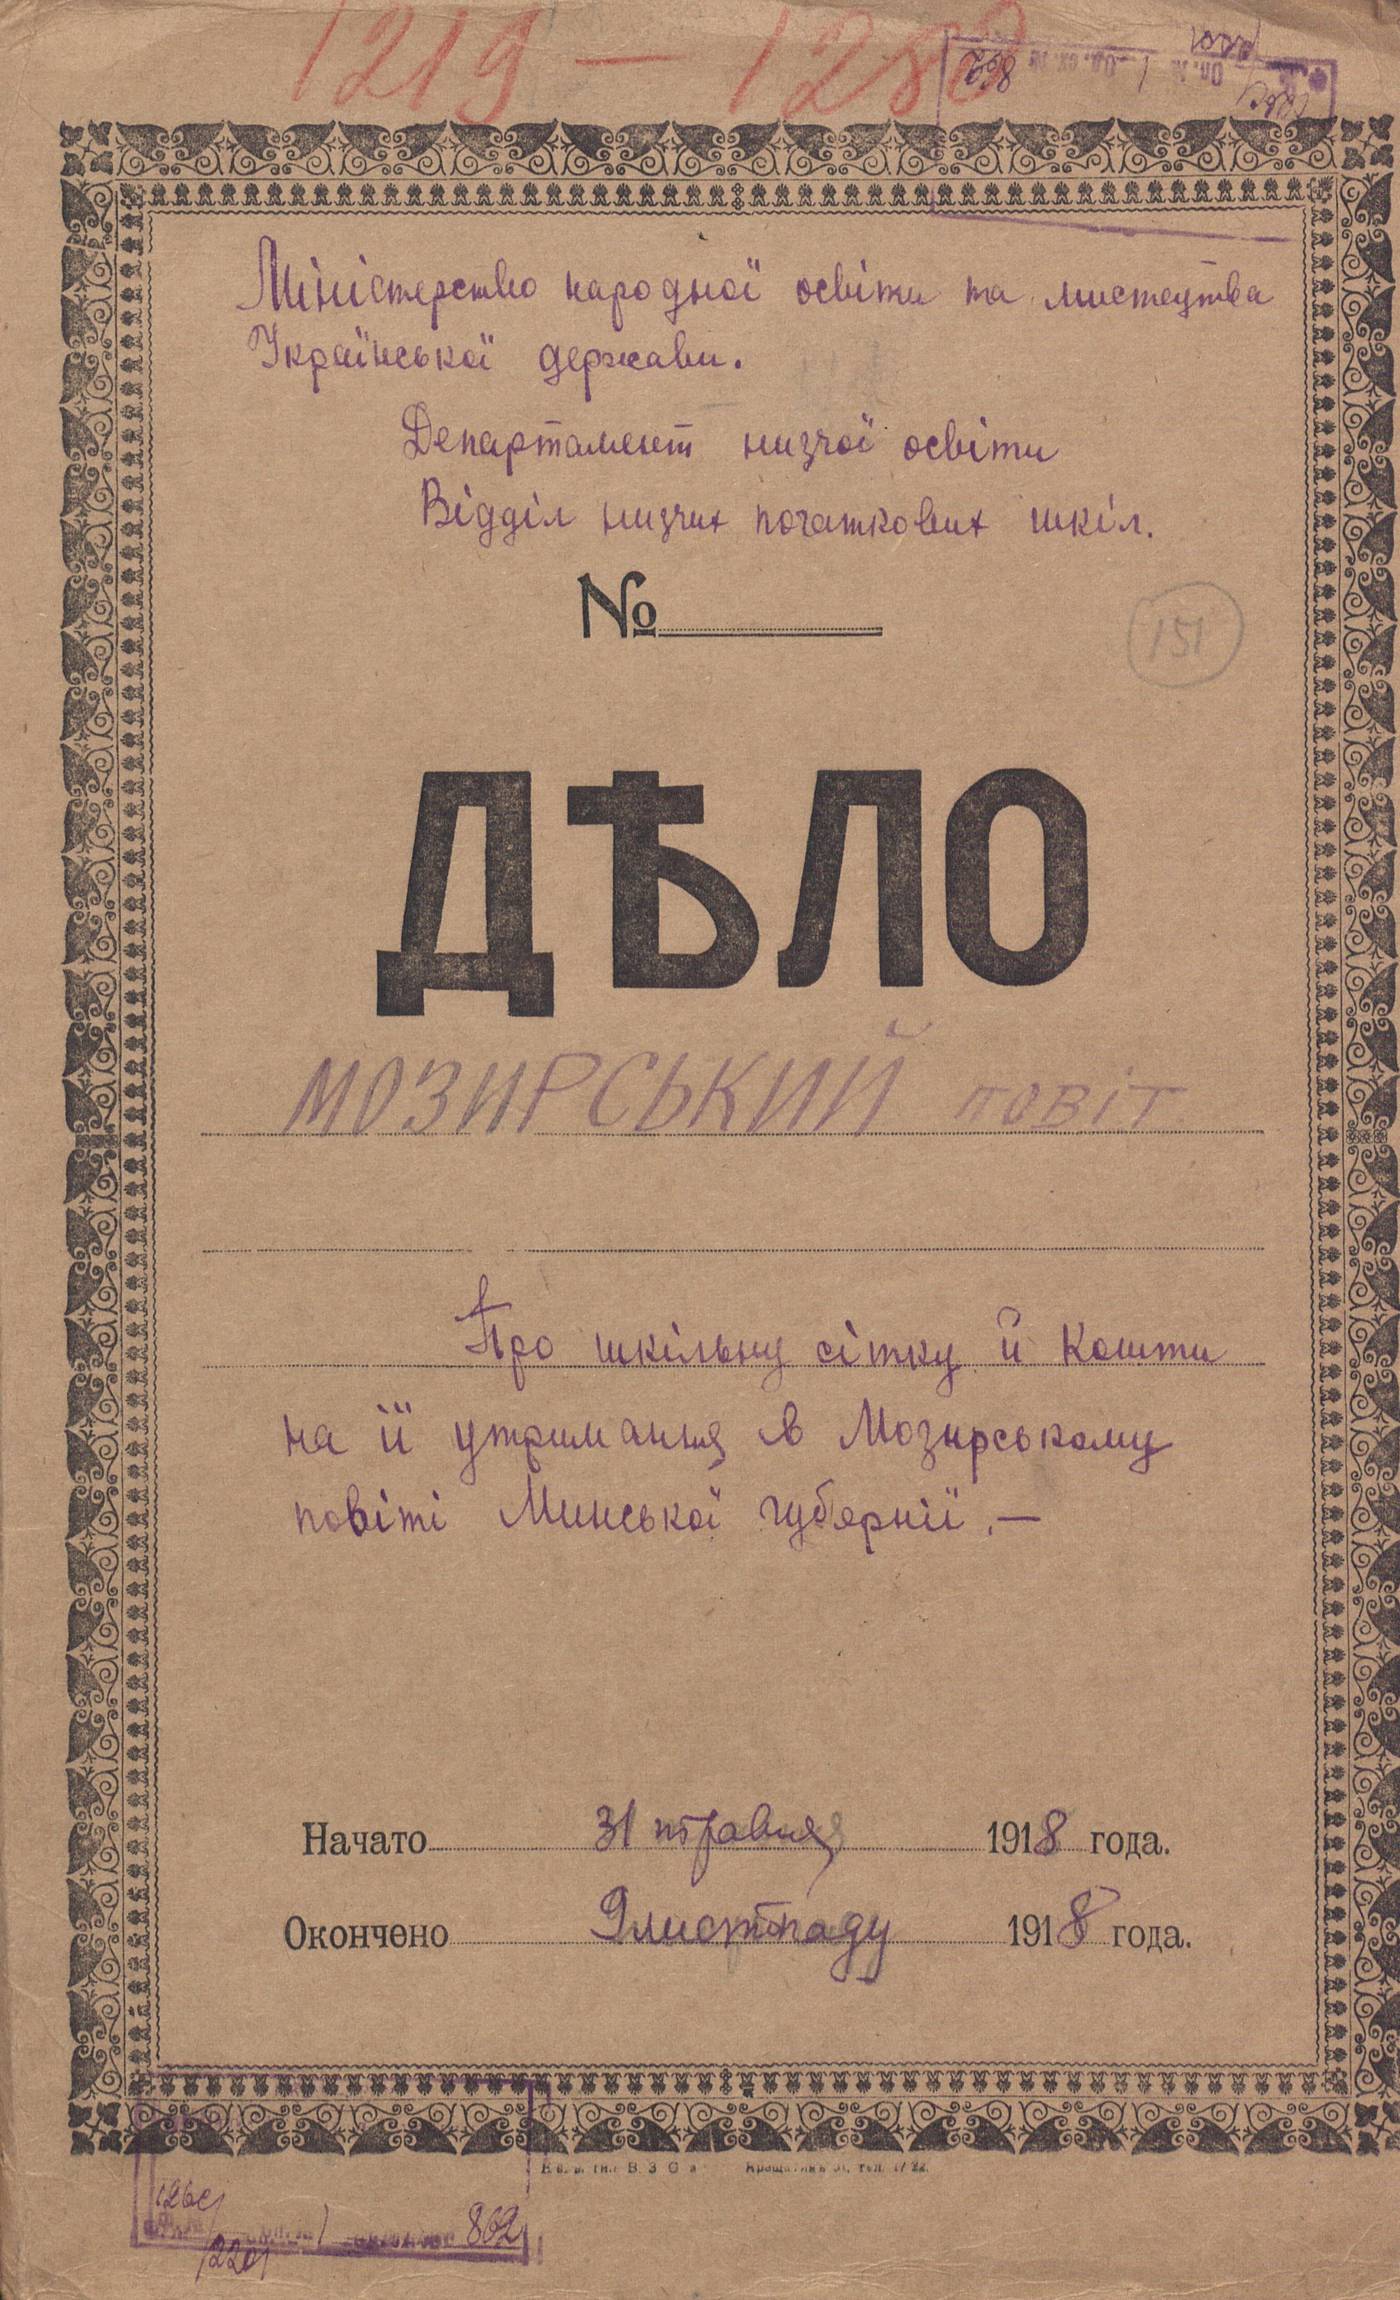 1219 — 1280
Міністерство народної освіти та мистецтва
Української держави.
Департамент низчої освіти
Відділ низчих початкових шкіл.
№
151
ДѢЛО
МОЗИРСЬКИЙ повіт
Про шкільну сітку й кошти
на її утримання в Мозирському
повіті Минської губернії.—
Начато 31 травня 1918 года.
Окончено 9 листопаду 1918 года.
862